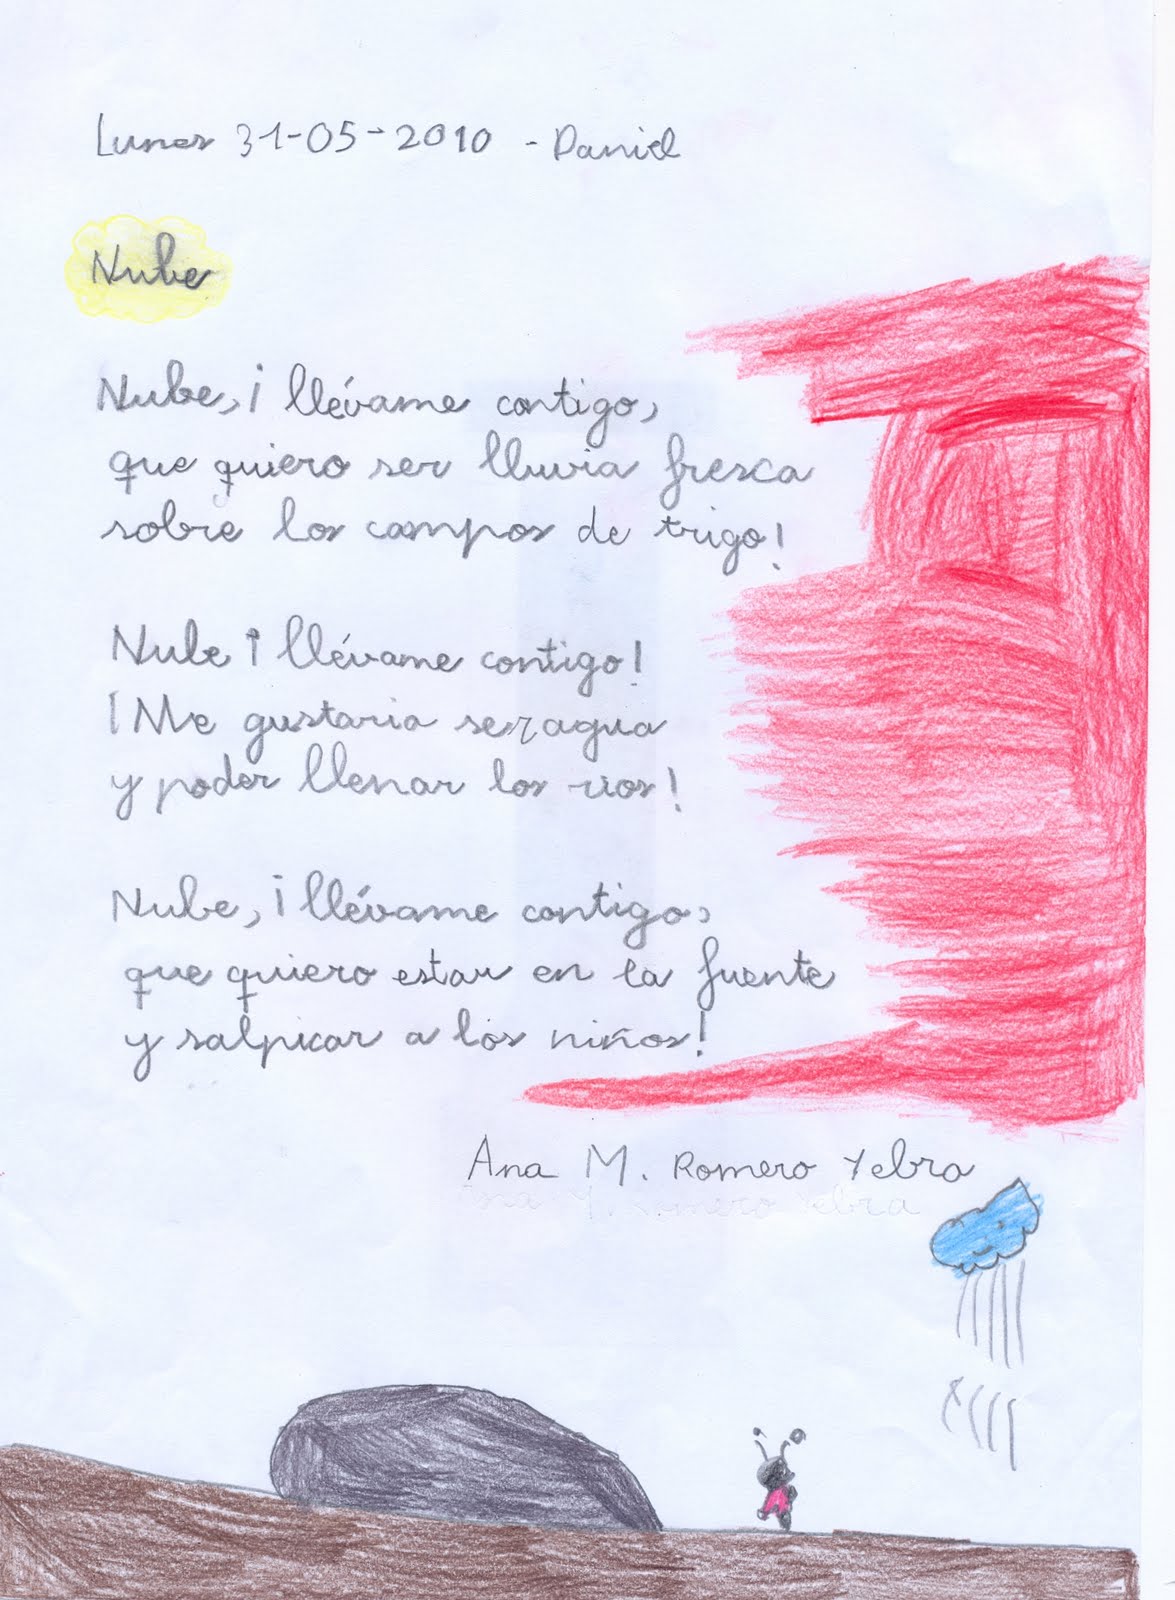 Lunes 31-05-2010 - Daniel
Nube
Nube, ¡llévame contigo,
que quiero ser lluvia fresca
sobre los campos de trigo!
Nube ¡llévame contigo!
¡Me gustaria ser agua
y poder llenar los rios!
Nube, ¡llévame contigo,
que quiero estar en la fuente
y salpicar a los niños!
Ana M. Romero Yebra
Ana M. Romero Yebra